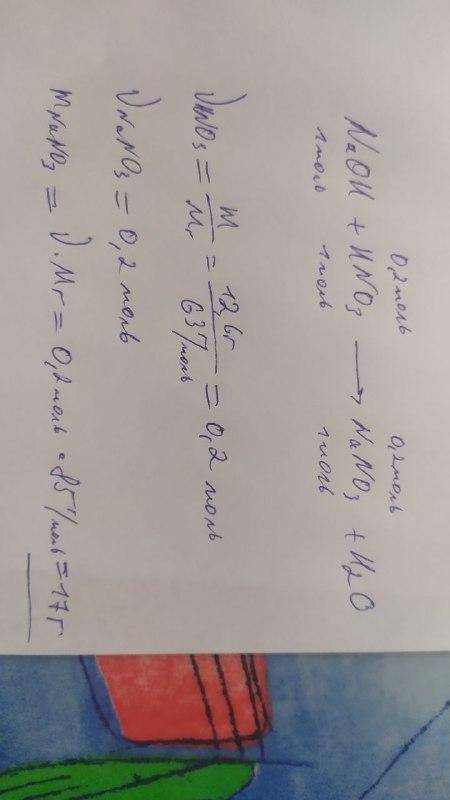 0,2 моль 0,2 моль
NaOH + HNO₃ ⟶ NaNO₃ + H₂O
1 моль 1 моль 1 моль
νHNO₃ = m/Mr = 12,6г/63г/моль = 0,2 моль
νNaNO₃ = 0,2 моль
mNaNO₃ = ν · Mr = 0,2 моль · 85г/моль = 17 г